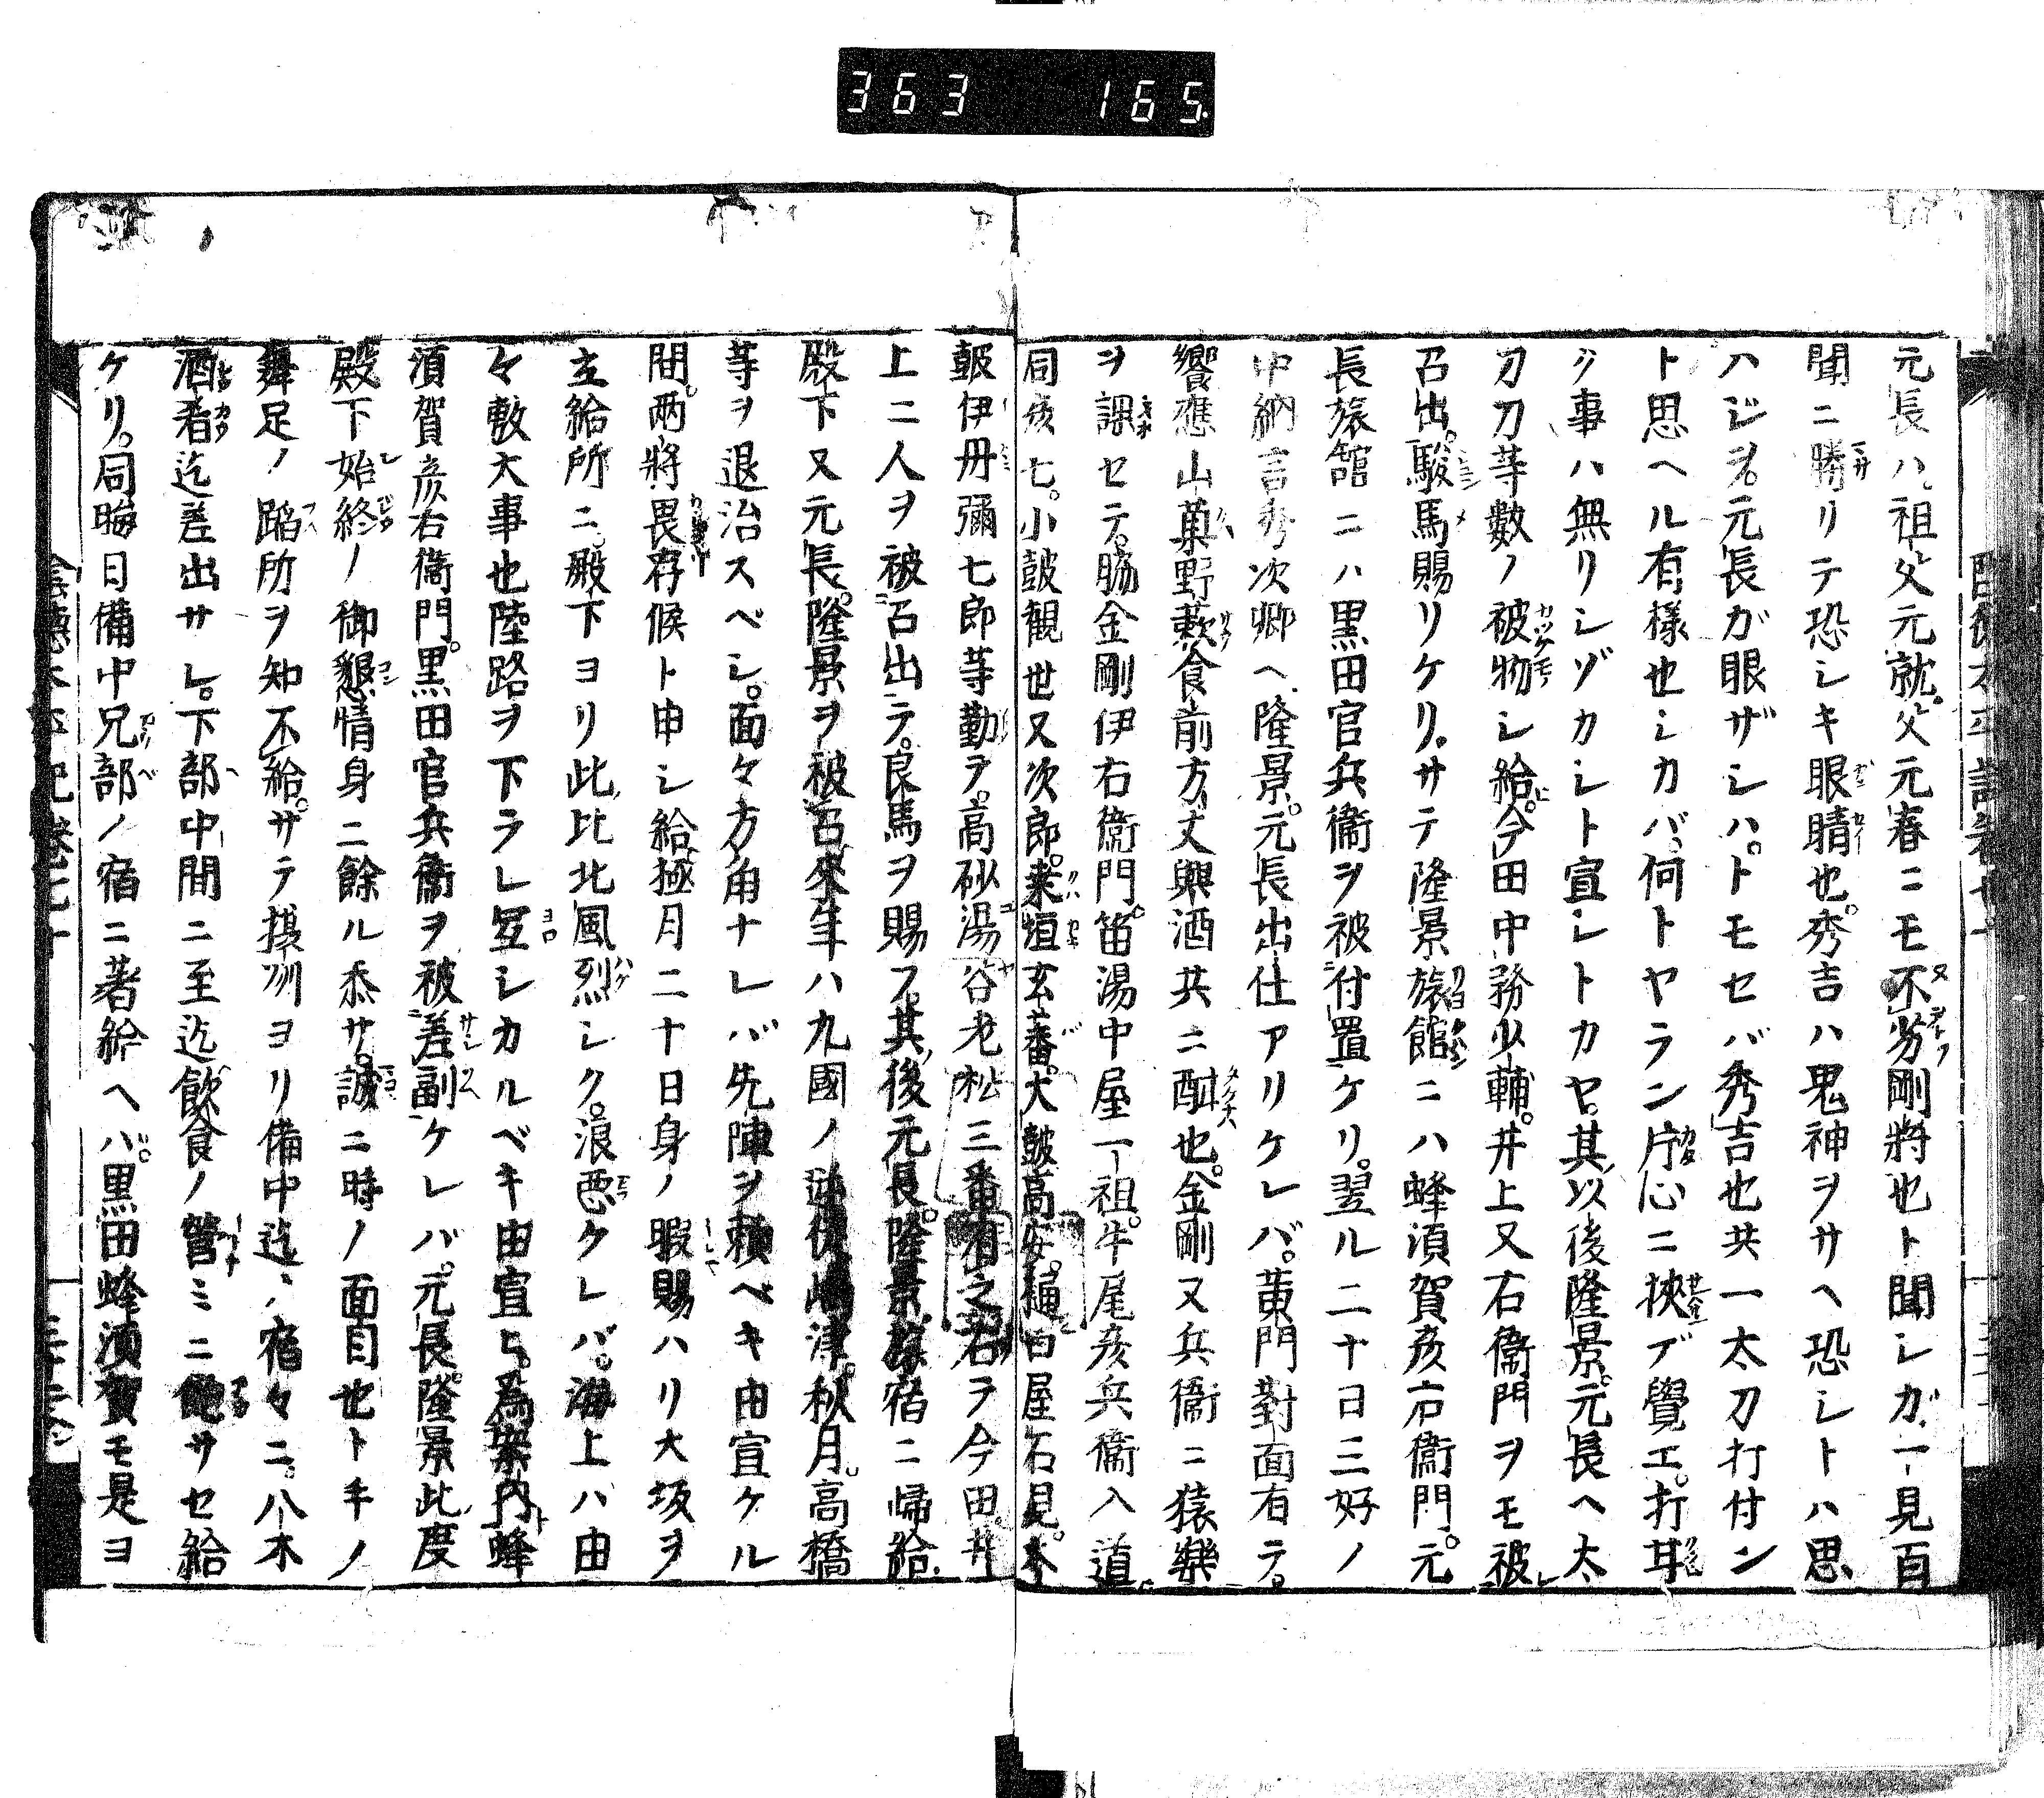 363 165
元長ハ祖父元就。父元春ニモ不劣剛將也ト聞シガ、一見百
聞ニ勝リテ恐シキ眼睛也。秀吉ハ鬼神ヲサヘ恐シトハ思
ハジヲ。元長ガ眼ザシハ。トモセバ秀吉也共一太刀打付ン
ト思ヘル有樣也シカバ。何トヤラン片心ニ挾デ覺エ。打耳
グ事ハ無リシゾカシト宣シトカヤ。其以後隆景。元長ヘ太
刀刀等數ノ被物シ給。今田中務少輔。井上又右衞門ヲモ被
召出。駿馬賜リケリ。サテ隆景旅館ニハ蜂須賀彦右衞門。元
長旅舘ニハ黒田官兵衞ヲ被付置ケリ。翌ル二十日三好ノ
中納言秀次卿ヘ隆景。元長出仕アリケレバ。黄門對面有テ。
饗應山菓野蔌食前方丈興酒共ニ酣也。金剛又兵衞ニ猿樂
ヲ課セテ。脇金剛伊右衞門。笛湯中屋一祖。牛尾彦兵衞入道
同彦七。小鼓観世又次郎。桒垣玄蕃。大鼓高安。樋口屋石見。太
鼓伊丹彌七郎等勤ヲ。高砂湯谷老松三番有之。右ヲ今田。井
上二人ヲ被召出テ。良馬ヲ賜フ。其後元長。隆景旅宿ニ歸給。
殿下又元長。隆景ヲ被召來年ハ九國ノ逆徒嶋津。秋月。高橋
等ヲ退治スベシ。面々方角ナレバ先陣ヲ頼ベキ由宣ケル
間。两將畏存候ト申シ給極月二十日身ノ暇賜ハリ大坂ヲ
立給所ニ。殿下ヨリ此比北風烈シク。浪悪ケレバ。海上ハ由
々敷大事也陸路ヲ下ラレ冝シカルベキ由宣ヒ。為案内蜂
須賀彦右衞門。黒田官兵衞ヲ被差副ケレバ。元長。隆景此度
殿下始終ノ御懇情身ニ餘ル忝サ。誠ニ時ノ面目也ト手ノ
舞足ノ蹈所ヲ知不給。サテ攝州ヨリ備中迄ノ宿々ニ。八木
酒肴迄差出サレ。下部中間ニ至迄飮食ノ營ミニ飽サセ給
ケリ。同晦日備中兄部ノ宿ニ著給ヘハ。黒田蜂須賀モ是ヨ